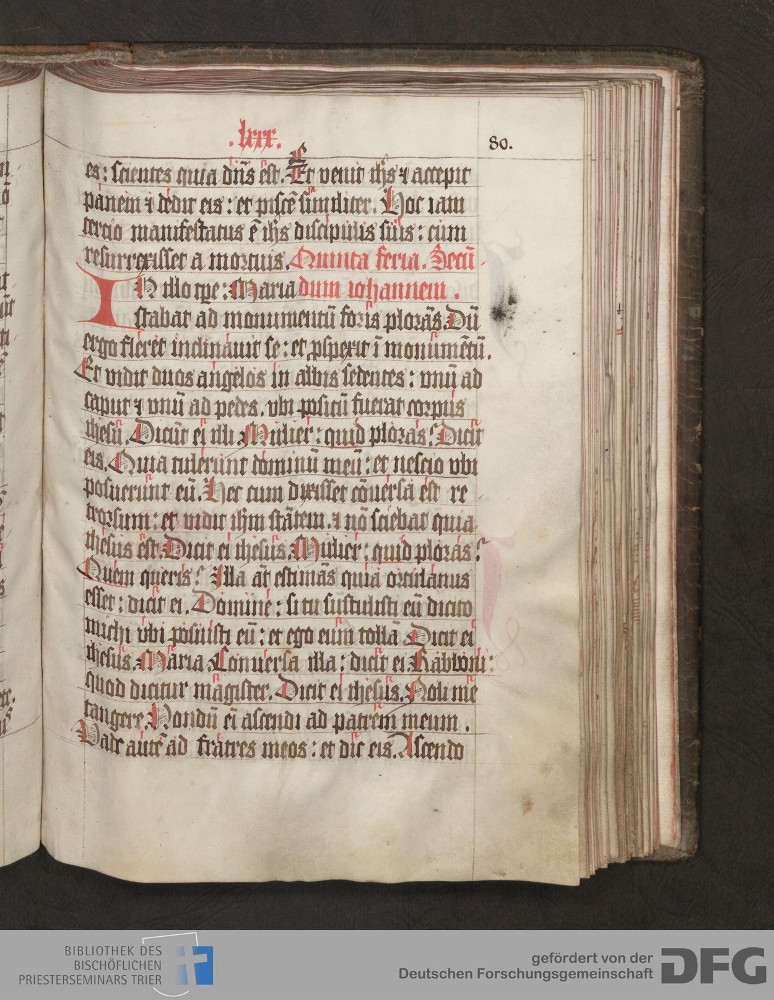 .lxxx.
80.
es: scientes quia dn̄s ēst. Et venit ih̄s ⁊ accepit
panem ⁊ dedit eis: et piscē similiter. Hoc iam
tercio manifestatus ē ih̄s discipulis suis: cum
resurrexisset a mortuis. Quinta feria. Secū
IN illo tp̄e: Maria dum iohannem.
stabat ad monumentū foris plorās. Dū
ergo fleret inclinauit se: et ꝓspexit ī monumētū.
Et vidit duos angelos in albis sedentes: vnū ad
caput ⁊ vnū ad pedes. vbi positū fuerat corpus
ihesu. Dicūt ei illi Mulier: quid ploras? Dicit
eis. Quia tulerunt dominū meū: et nescio vbi
posuerunt eū. Hec cum dixisset cōuersa est re
trorsum: et vidit ihm̄ stātem. ⁊ nō sciebat quia
ihesus est. Dicit ei ihesus. Mulier: quid ploras?
Quem queris? Illa āt estimās quia ortulanus
esset: dicit ei. Domine: si tu sustulisti eū dicito
michi vbi posuisti eū: et ego eum tollā. Dicit ei
ihesus. Maria. Conuersa illa: dicit ei. Rabboni:
quod dicitur magister. Dicit ei ihesus. Noli me
tangere. Nondū eī ascendi ad patrem meum.
Vade autē ad fratres meos: et dic eis. Ascendo
BIBLIOTHEK DES
BISCHÖFLICHEN
PRIESTERSEMINARS TRIER
gefördert von der
Deutschen Forschungsgemeinschaft
DFG